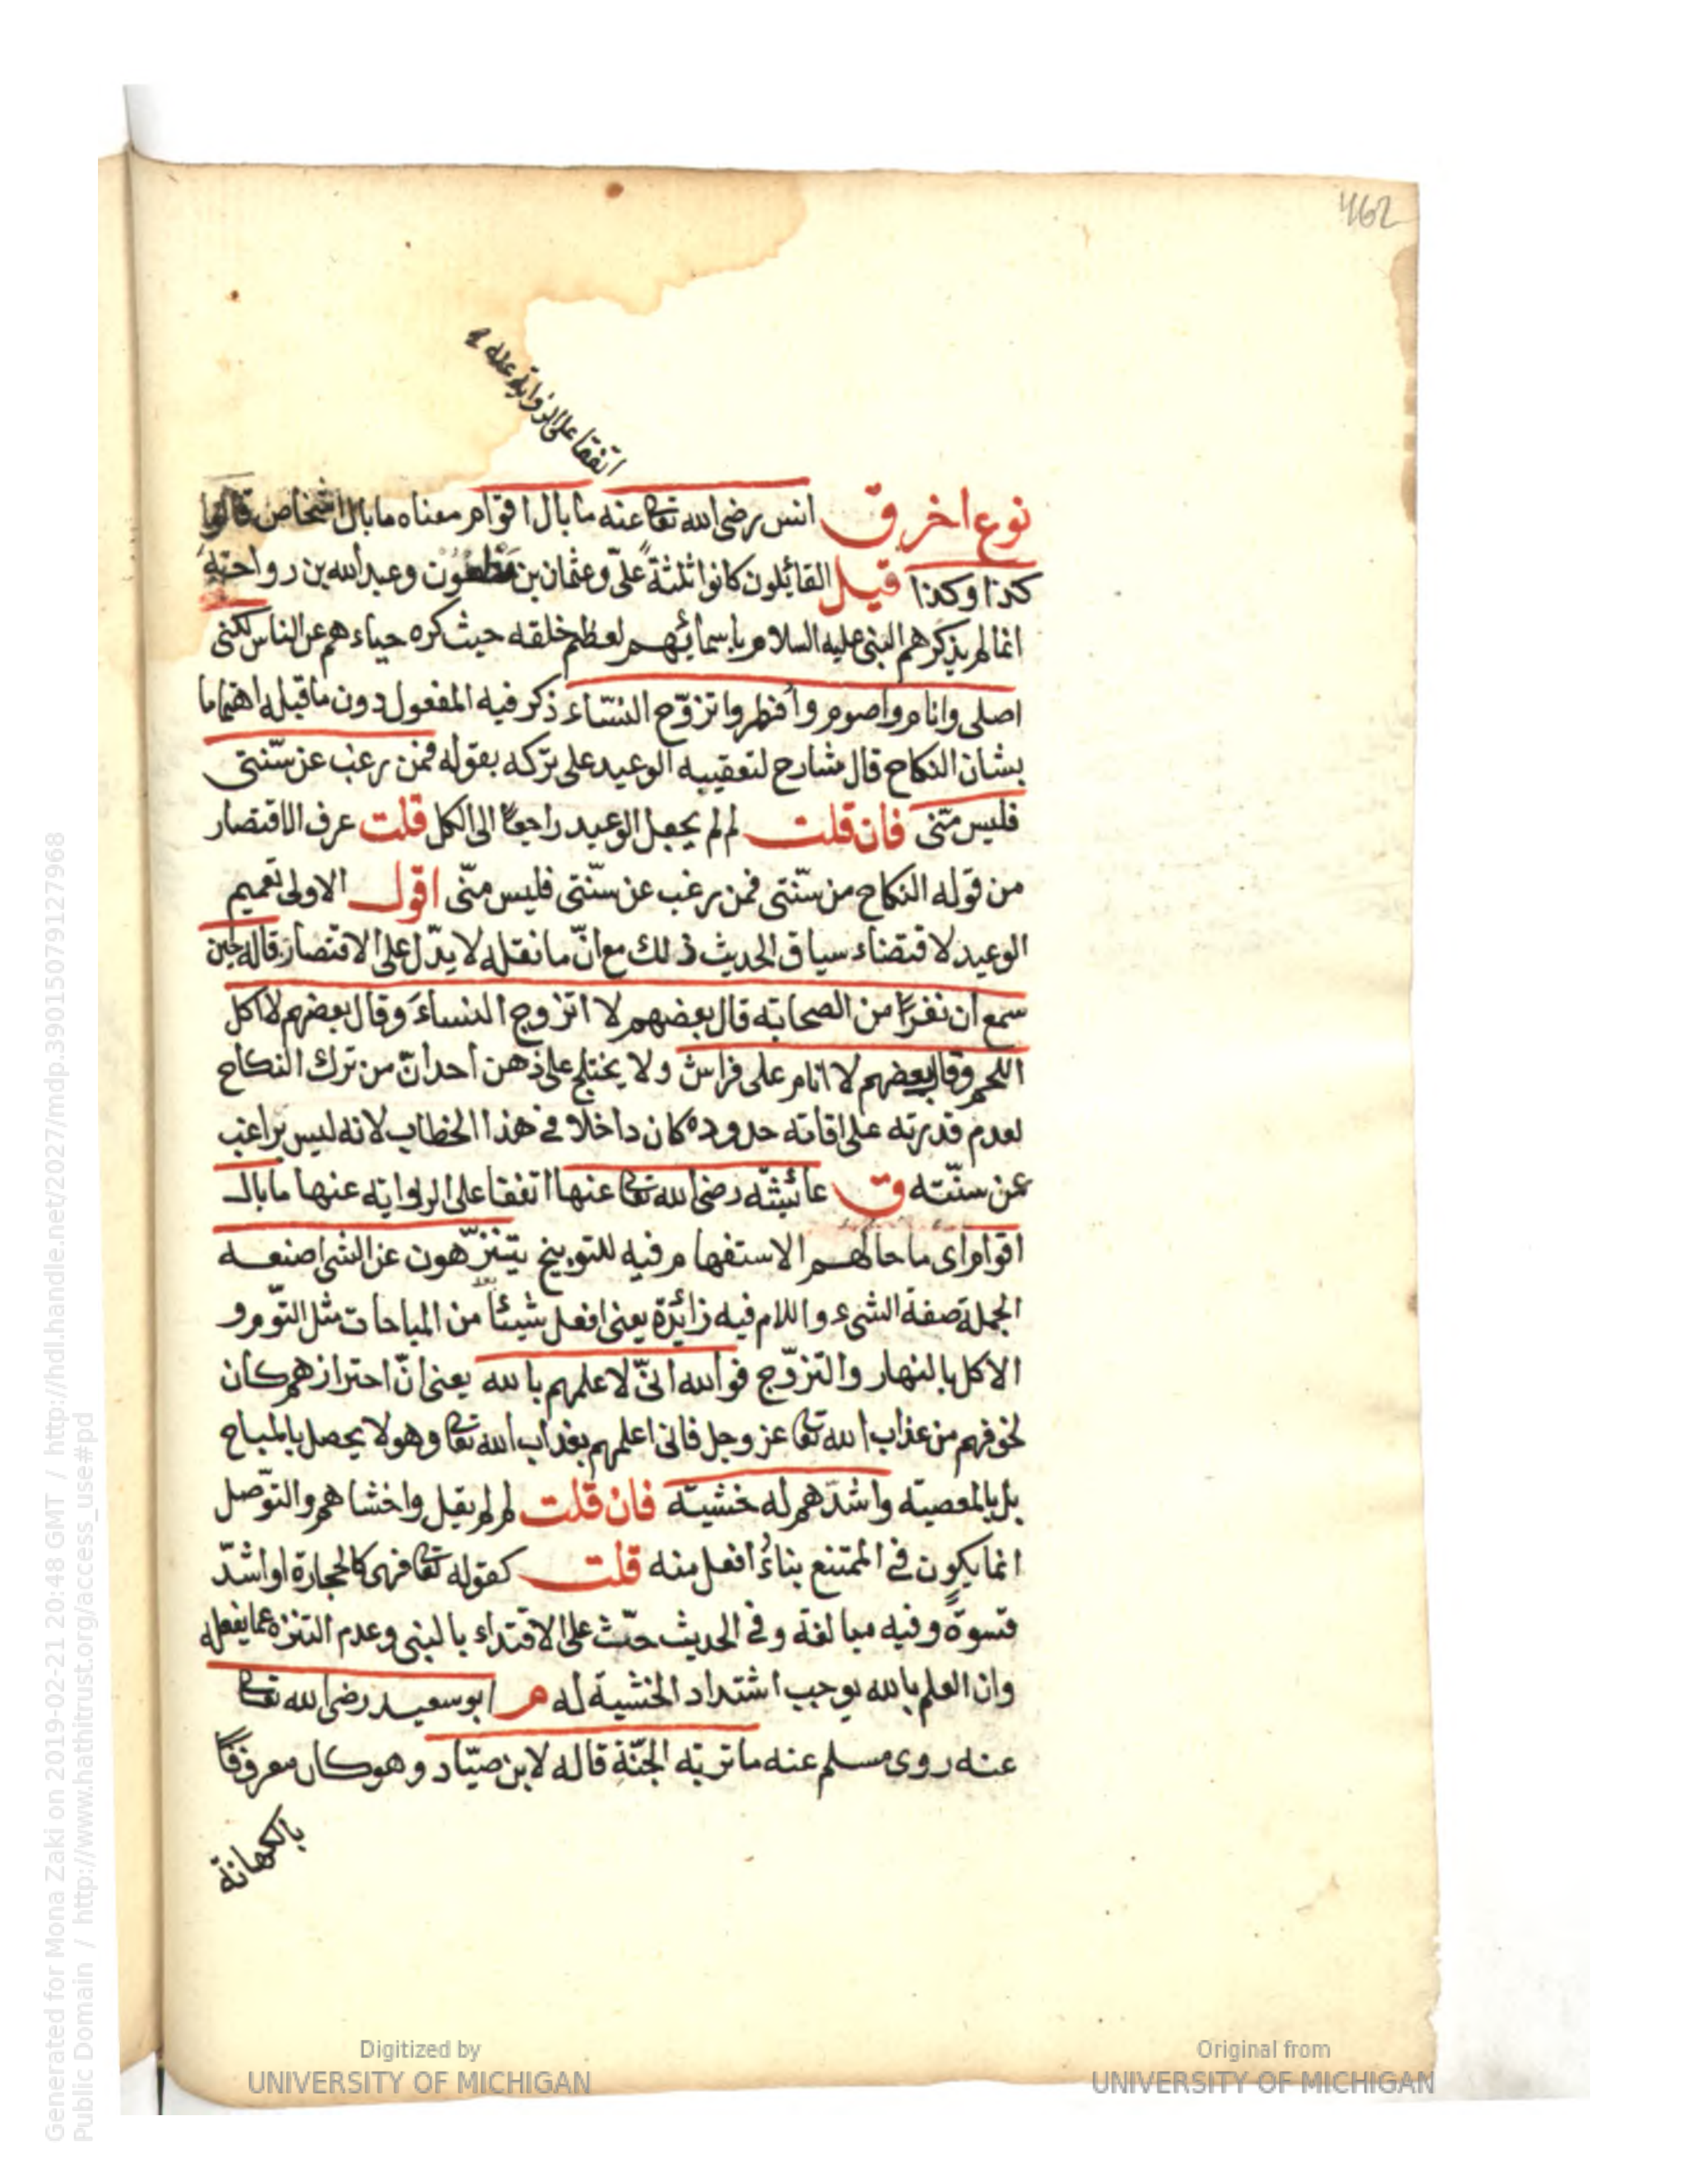 462
اتفقا على الرواية عنه
نوع اخر ق انس رضى الله تعا عنه ما بال اقوام معناه ما بال اشخاص قالوا
كذا وكذا قيل القائلون كانوا ثلثة علىّ وعثمان بن مظعون وعبد الله بن رواحة
انما لم يذكرهم النبى عليه السلام باسمائهم لعظم خلقه حيث كره حياءهم عن الناس لكنى
اصلى وانام واصوم وأفطر واتزوّج النسّاء ذكر فيه المفعول دون ما قبله اهتماما
بشان النكاح قال شارح لتعقيبه الوعيد على تركه بقوله فمن رغب عن سنّتى
فليس منّى فان قلت لم لم يجعل الوعيد راجعًا الى الكل قلت عرف الاقتصار
من قوله النكاح من سنّتى فمن رغب عن سنّتى فليس منّى اقول الاولى تعميم
الوعيد لاقتضاء سياق الحديث ذلك مع انّ ما نقله لا يدّل على الاقتصار قاله حين
سمع ان نفرًا من الصحابة قال بعضهم لا اتزوج النساءَ وقال بعضهم لا اكل
اللحم وقال بعضهم لا انام على فراش ولا يختلج على ذهن احد انّ من ترك النكاح
لعدم قدرته على اقامة حدوده كان داخلا فى هذا الخطاب لانه ليس براغب
عن سنّته ق عائيشة رضى الله تعا عنها اتفقا على الرواية عنها ما بال
اقوام اى ما حالهم الاستفهام فيه للتوبيخ يتنزّهون عن الشى اصنعه
الجملة صفة الشىء واللام فيه زائدة يعنى افعل شيئًا من المباحات مثل النّوم و
الاكل بالنهار والتزوّج فوالله انىّ لاعلمهم بالله يعنى انّ احترازهم كان
لخوفهم من عذاب الله تعا عز وجل فانى اعلمهم بعذاب الله تعا وهو لا يحصل بالمباح
بل بالمعصية واشدّهم له خشية فان قلت لم لم يقل واخشاهم والتوّصل
انما يكون فى الممتنع بناءُ افعل منه قلت كقوله تعا فهى كالحجارة او اشدّ
قسوةً وفيه مبالغة وفى الحديث حثّ على الاقتداء بالنبى وعدم التنزه عما يفعله
وان العلم بالله يوجب اشتداد الخشية له م ابو سعيد رضى الله تعا
عنه روى مسلم عنه ما تربة الجنّة قاله لابن صيّاد وهو كان معروفًا
بالكهانة
Generated for Mona Zaki on 2019-02-21 20:48 GMT / http://hdl.handle.net/2027/mdp.39015079127968
Public Domain / http://www.hathitrust.org/access_use#pd
Digitized by
UNIVERSITY OF MICHIGAN
Original from
UNIVERSITY OF MICHIGAN